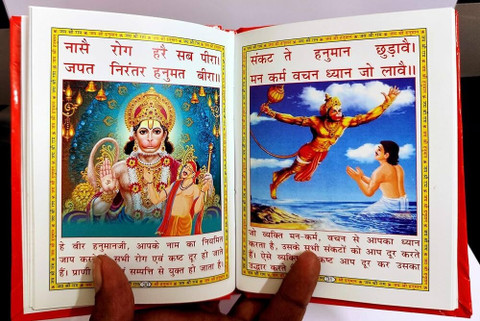 नासै रोग हरै सब पीरा।
जपत निरंतर हनुमत बीरा॥
हे वीर हनुमानजी, आपके नाम का नियमित
जाप करने सभी रोग एवं कष्ट दूर हो जाते
हैं। प्राणी सम्पत्ति से युक्त हो जाता है।
संकट ते हनुमान छुड़ावै।
मन कर्म वचन ध्यान जो लावै॥
जो व्यक्ति मन-कर्म, वचन से आपका ध्यान
करता है, उसके सभी संकटों को आप दूर करते
हैं। ऐसे व्यक्ति कष्ट आप दूर कर उसका
उद्धार करते